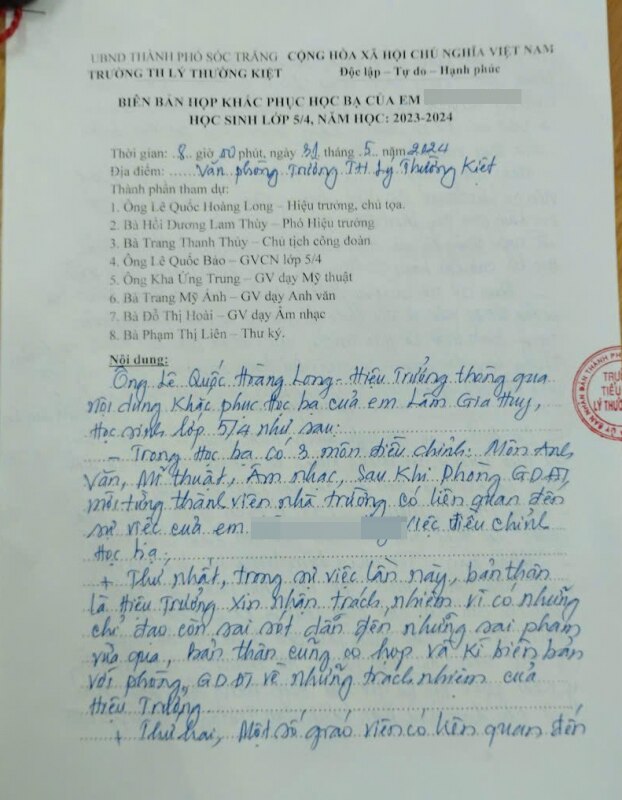 UBND THÀNH PHỐ SÓC TRĂNG CỘNG HÒA XÃ HỘI CHỦ NGHĨA VIỆT NAM
TRƯỜNG TH LÝ THƯỜNG KIỆT Độc lập – Tự do – Hạnh phúc
BIÊN BẢN HỌP KHẮC PHỤC HỌC BẠ CỦA EM
HỌC SINH LỚP 5/4, NĂM HỌC: 2023-2024
Thời gian: 8 giờ 00 phút, ngày 31 tháng 5 năm 2024
Địa điểm: Văn phòng Trường TH Lý Thường Kiệt
Thành phần tham dự:
1. Ông Lê Quốc Hoàng Long – Hiệu trưởng, chủ tọa.
2. Bà Hồi Dương Lam Thùy – Phó Hiệu trưởng
3. Bà Trang Thanh Thùy – Chủ tịch công đoàn
4. Ông Lê Quốc Bảo – GVCN lớp 5/4
5. Ông Kha Ứng Trung – GV dạy Mỹ thuật
6. Bà Trang Mỹ Ảnh – GV dạy Anh văn
7. Bà Đỗ Thị Hoài – GV dạy Âm nhạc
8. Bà Phạm Thị Liên – Thư ký.
Nội dung:
Ông Lê Quốc Hoàng Long - Hiệu Trưởng thông qua
nội dung Khắc phục học bạ của em Lâm Gia Huy,
Học sinh lớp 5/4 như sau:
- Trong Học bạ có 3 môn điều chỉnh: Môn Anh
Văn, Mĩ thuật, Âm nhạc, Sau Khi Phòng GDĐT
mời từng thành viên nhà trường có liên quan đến
sự việc của em việc điều chỉnh
Học bạ:
+ Thứ nhất, trong sự việc lần này, bản thân
là Hiệu Trưởng xin nhận trách nhiệm vì có những
chỉ đạo còn sai sót dẫn đến những sai phạm
vừa qua, bản thân cũng có họp và kí biên bản
với phòng GDĐT về những trách nhiệm của
Hiệu Trưởng
+ Thứ hai, Một số giáo viên có liên quan đến